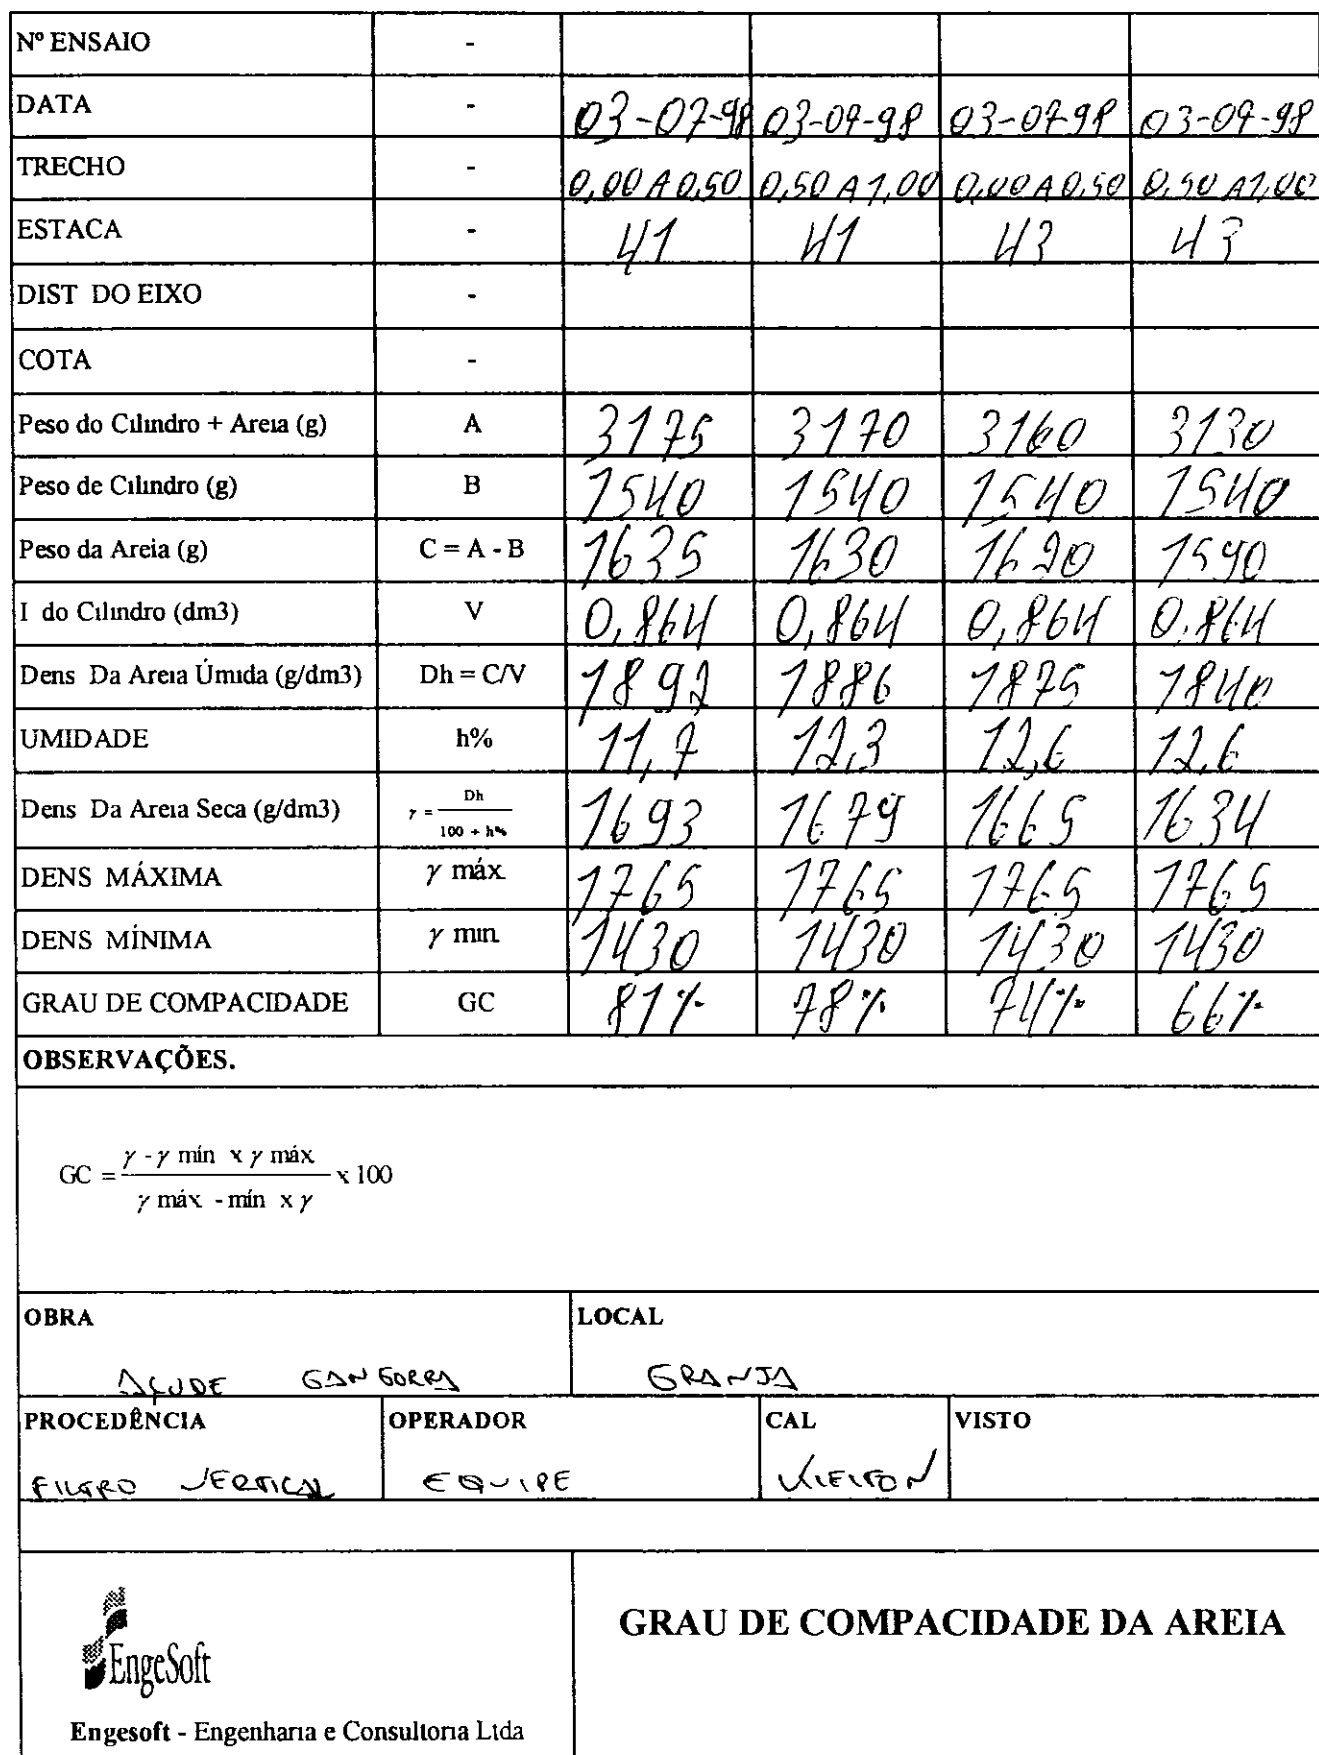 Nº ENSAIO -
DATA - 03-07-98 03-07-98 03-07-98 03-07-98
TRECHO - 0,00 A 0,50 0,50 A 1,00 0,00 A 0,50 0,50 A 1,00
ESTACA - 41 41 43 43
DIST DO EIXO -
COTA -
Peso do Cilindro + Areia (g) A 3175 3170 3160 3130
Peso de Cilindro (g) B 1540 1540 1540 1540
Peso da Areia (g) C = A - B 1635 1630 1620 1590
I do Cilindro (dm3) V 0,864 0,864 0,864 0,864
Dens Da Areia Úmida (g/dm3) Dh = C/V 1892 1886 1875 1840
UMIDADE h% 11,7 12,3 12,6 12,6
Dens Da Areia Seca (g/dm3) γ = Dh / 100 + h% 1693 1679 1665 1634
DENS MÁXIMA γ máx 1765 1765 1765 1765
DENS MÍNIMA γ mın 1430 1430 1430 1430
GRAU DE COMPACIDADE GC 81% 78% 74% 66%
OBSERVAÇÕES.
GC = γ - γ mín x γ máx / γ máx - mín x γ x 100
OBRA LOCAL
AÇUDE GANGORRA GRANJA
PROCEDÊNCIA OPERADOR CAL VISTO
FILTRO VERTICAL EQUIPE
EngeSoft
GRAU DE COMPACIDADE DA AREIA
Engesoft - Engenharia e Consultoria Ltda